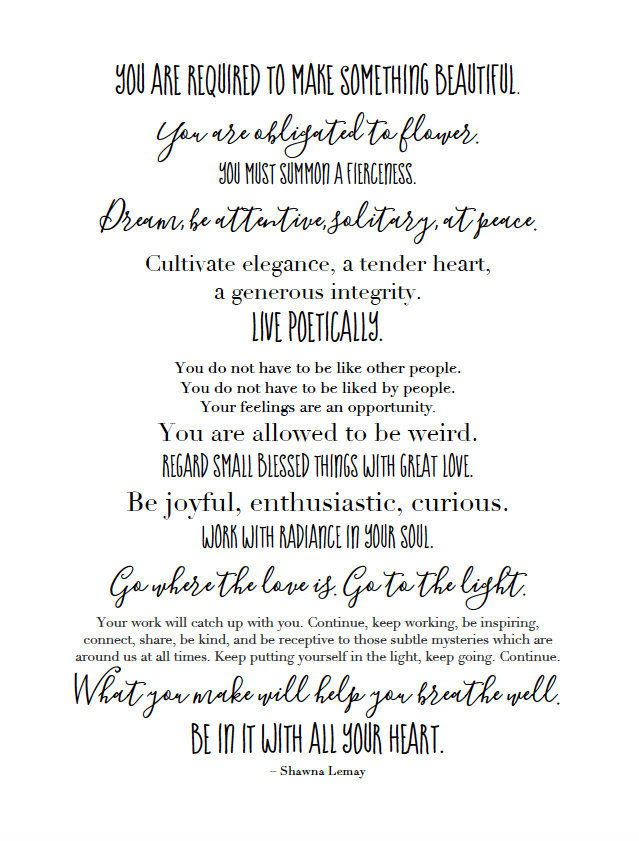 YOU ARE REQUIRED TO MAKE SOMETHING BEAUTIFUL.
You are obligated to flower.
YOU MUST SUMMON A FIERCENESS.
Dream, be attentive, solitary, at peace.
Cultivate elegance, a tender heart,
a generous integrity.
LIVE POETICALLY.
You do not have to be like other people.
You do not have to be liked by people.
Your feelings are an opportunity.
You are allowed to be weird.
REGARD SMALL BLESSED THINGS WITH GREAT LOVE.
Be joyful, enthusiastic, curious.
WORK WITH RADIANCE IN YOUR SOUL.
Go where the love is. Go to the light.
Your work will catch up with you. Continue, keep working, be inspiring,
connect, share, be kind, and be receptive to those subtle mysteries which are
around us at all times. Keep putting yourself in the light, keep going. Continue.
What you make will help you breathe well.
BE IN IT WITH ALL YOUR HEART.
– Shawna Lemay